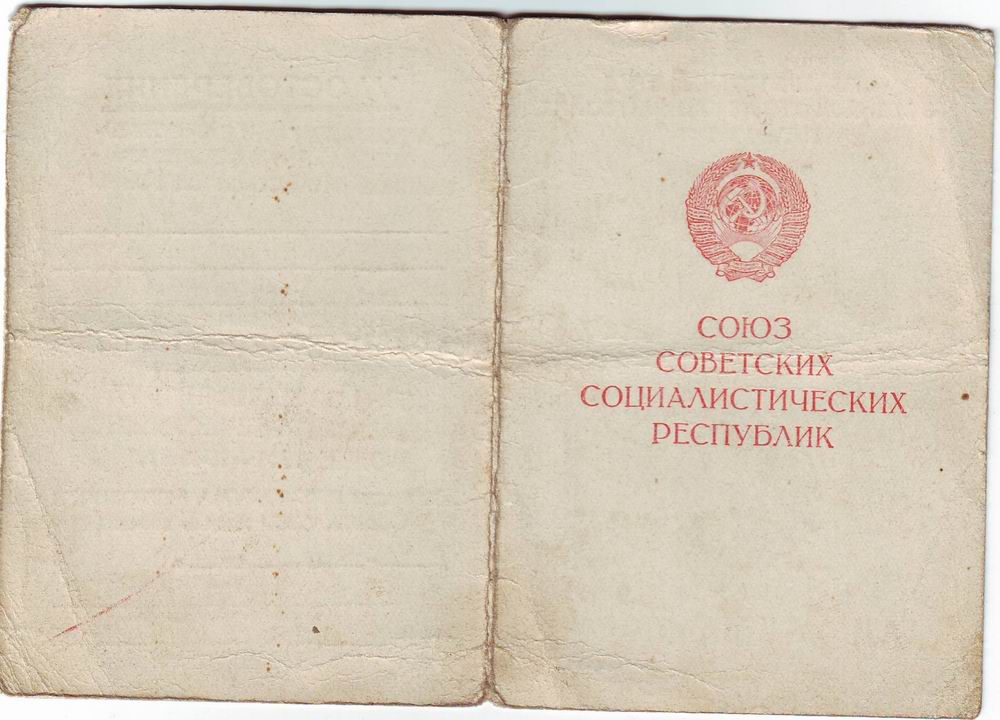 СОЮЗ
СОВЕТСКИХ
СОЦИАЛИСТИЧЕСКИХ
РЕСПУБЛИК